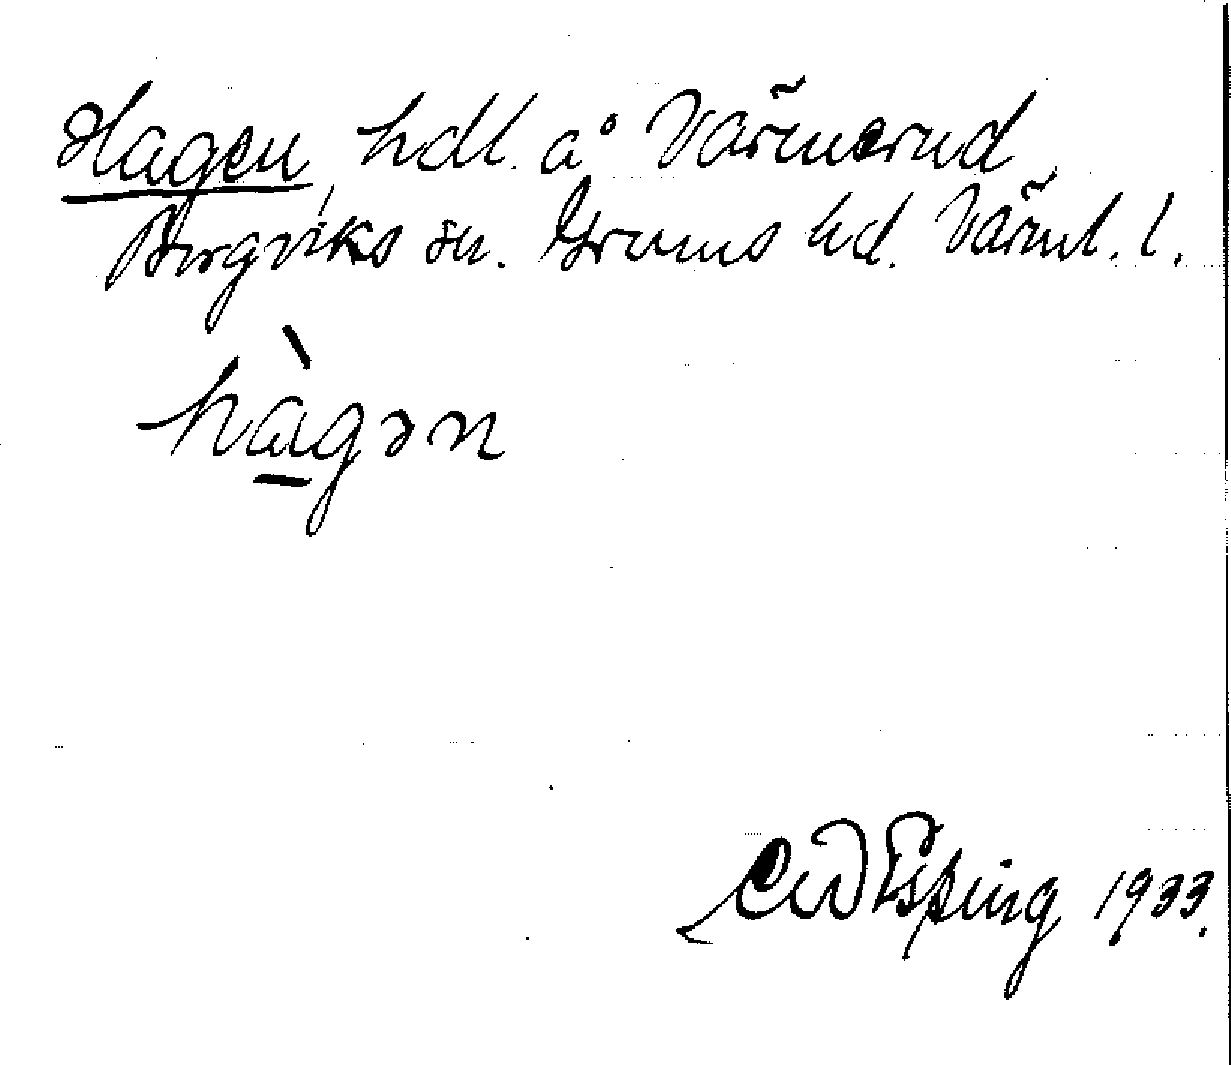 Hagen, hdl. å Värmerud
Borgviks sn. Grums hd. Värml. l.
hàgən
Esping 1933.